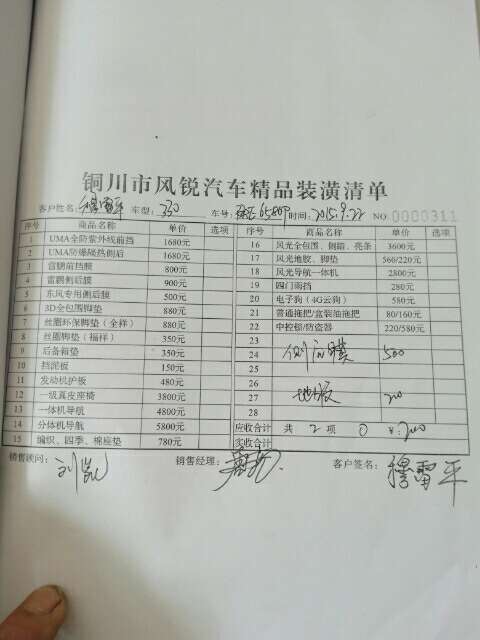 铜川市风锐汽车精品装潢清单
客户姓名：穆雷平 车型：330 车号： 时间：2015.9.22 NO 0000311
序号 商品名称 单价 选项 序号 商品名称 单价 选项
1 UMA全防紫外线前挡 1680元 16 风光全包围、侧踏、亮条 3600元
2 UMA防爆隔热侧后 1680元 17 风光地胶、脚垫 560/220元
3 雷鹏前挡膜 800元 18 风光导航一体机 2800元
4 雷鹏侧后膜 900元 19 四门雨挡 280元
5 东风专用侧后膜 500元 20 电子狗（4G云狗） 580元
6 3D全包围脚垫 880元 21 普通拖把/盒装油拖把 80/160元
7 丝圈环保脚垫（全样） 880元 22 中控锁/防盗器 220/580元
8 丝圈脚垫（福样） 350元 23
9 后备箱垫 350元 24 侧后膜 500
10 挡泥板 150元 25
11 发动机护板 480元 26
12 一级真皮座椅 3800元 27 地板
13 一体机导航 4800元 28
14 分体机导航 5800元 应收合计 共 2 项
15 编织、四季、棉座垫 780元 实收合计
销售顾问：刘凯 销售经理： 客户签名：穆雷平